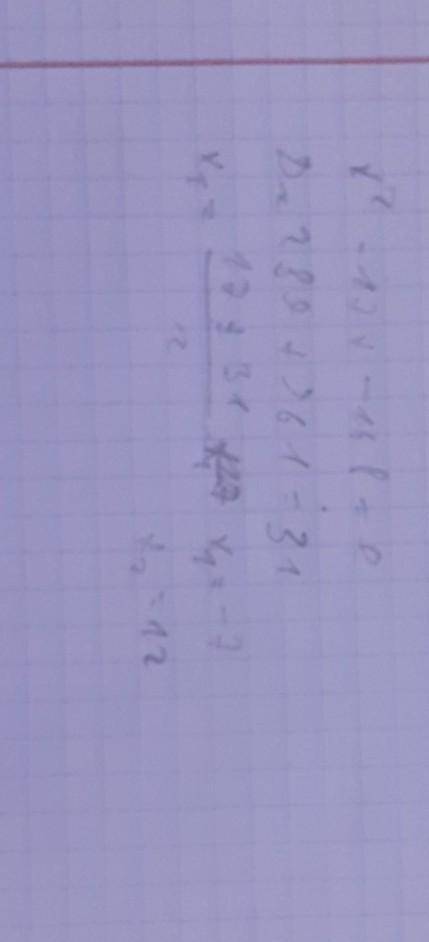 x² - 17x - 168 = 0
D = 289 + 961 = 31
x₁ = 17 ± 31
2
x₁ = -7
x₂ = 12